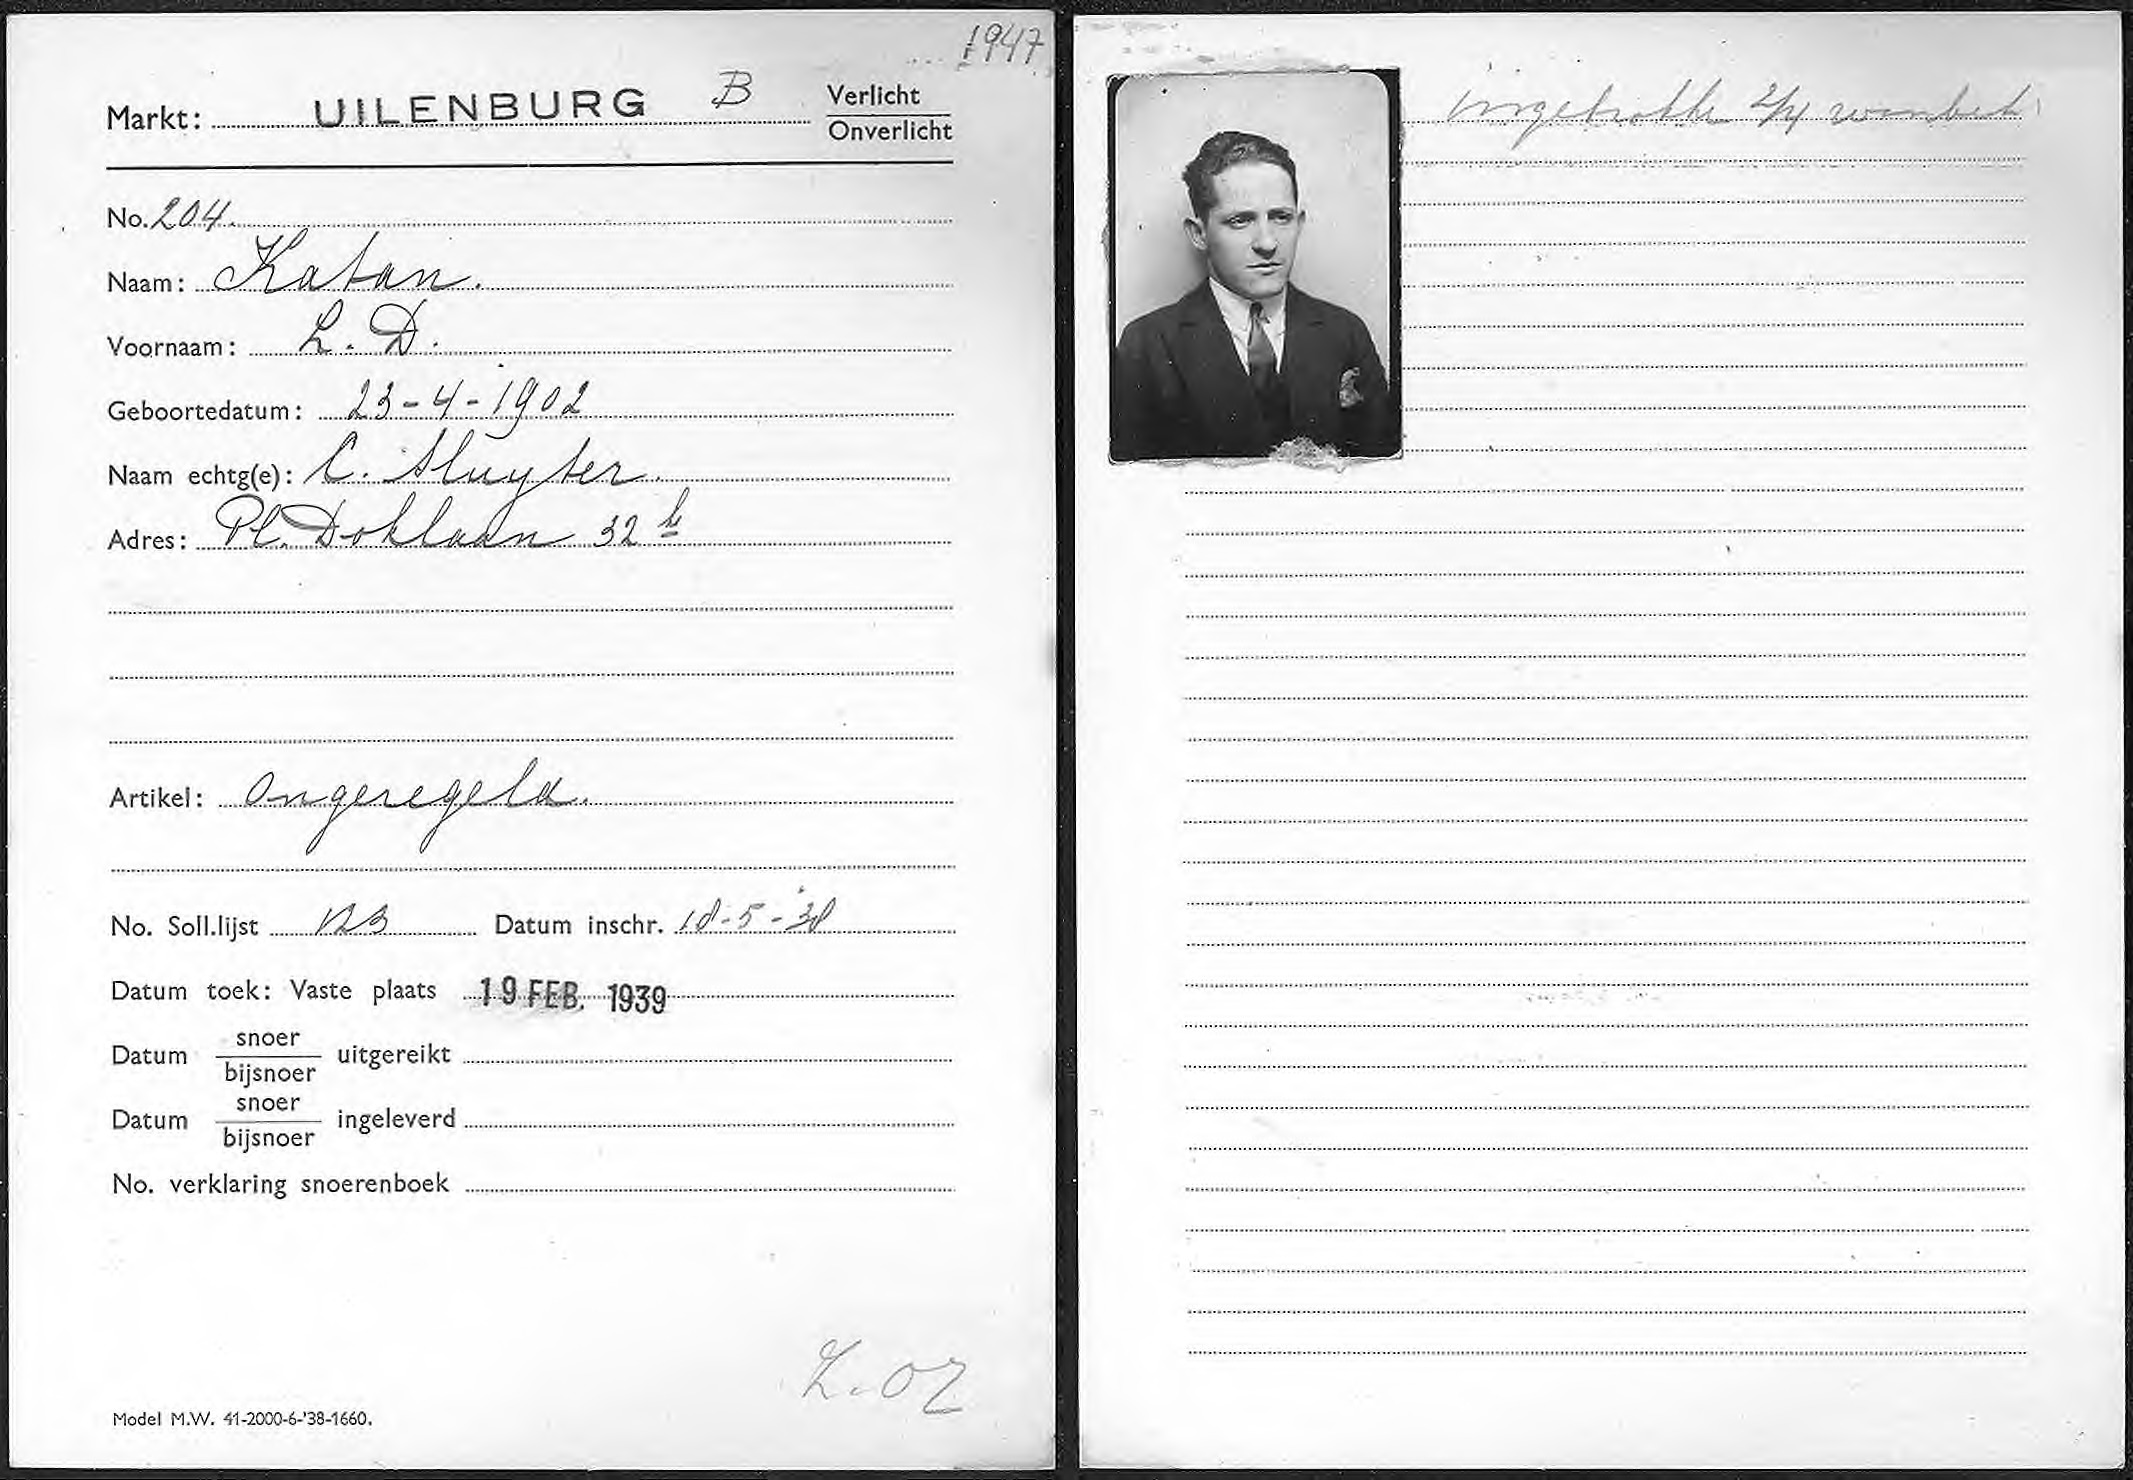 1947
Markt: UILENBURG B Verlicht
Onverlicht
No. 204.
Naam: Katan.
Voornaam: L. D.
Geboortedatum: 23-4-1902
Naam echtg(e): C. Sluyter.
Adres: Pl. Doklaan 32 h
Artikel: Ongeregeld.
No. Soll.lijst 123 Datum inschr. 18-5-38
Datum toek: Vaste plaats 19 FEB. 1939
Datum snoer uitgereikt
bijsnoer
Datum snoer ingeleverd
bijsnoer
No. verklaring snoerenboek
Model M.W. 41-2000-6-'38-1660.
Ingetrokken wanbet.